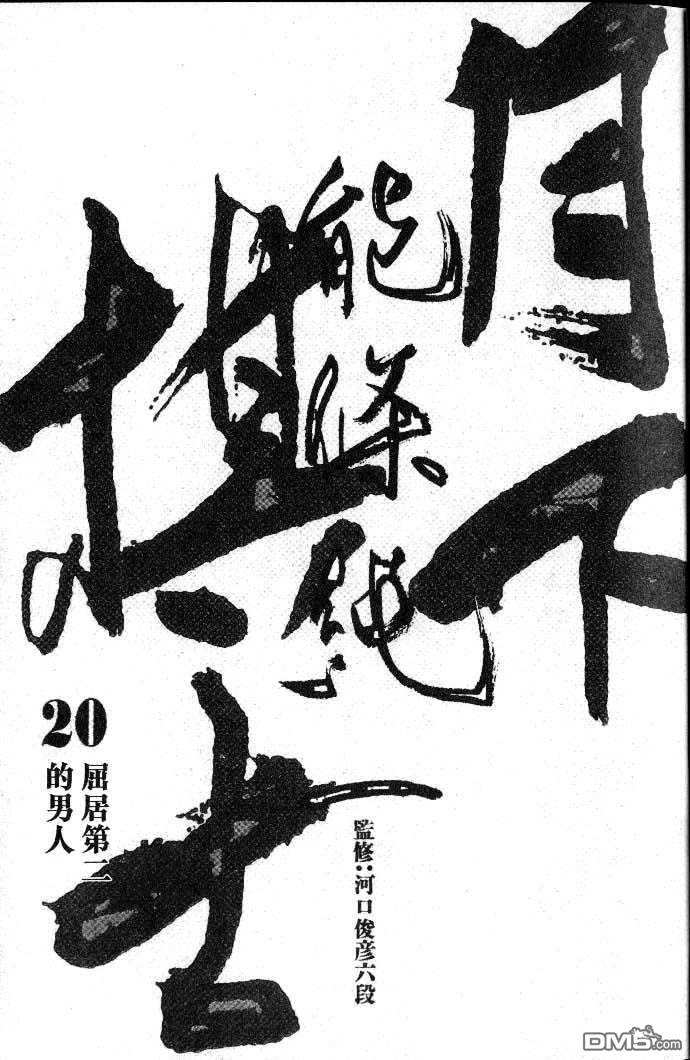 月下
棋士
能條純一
監修:河口俊彦六段
20
屈居第二
的男人
DM5.com